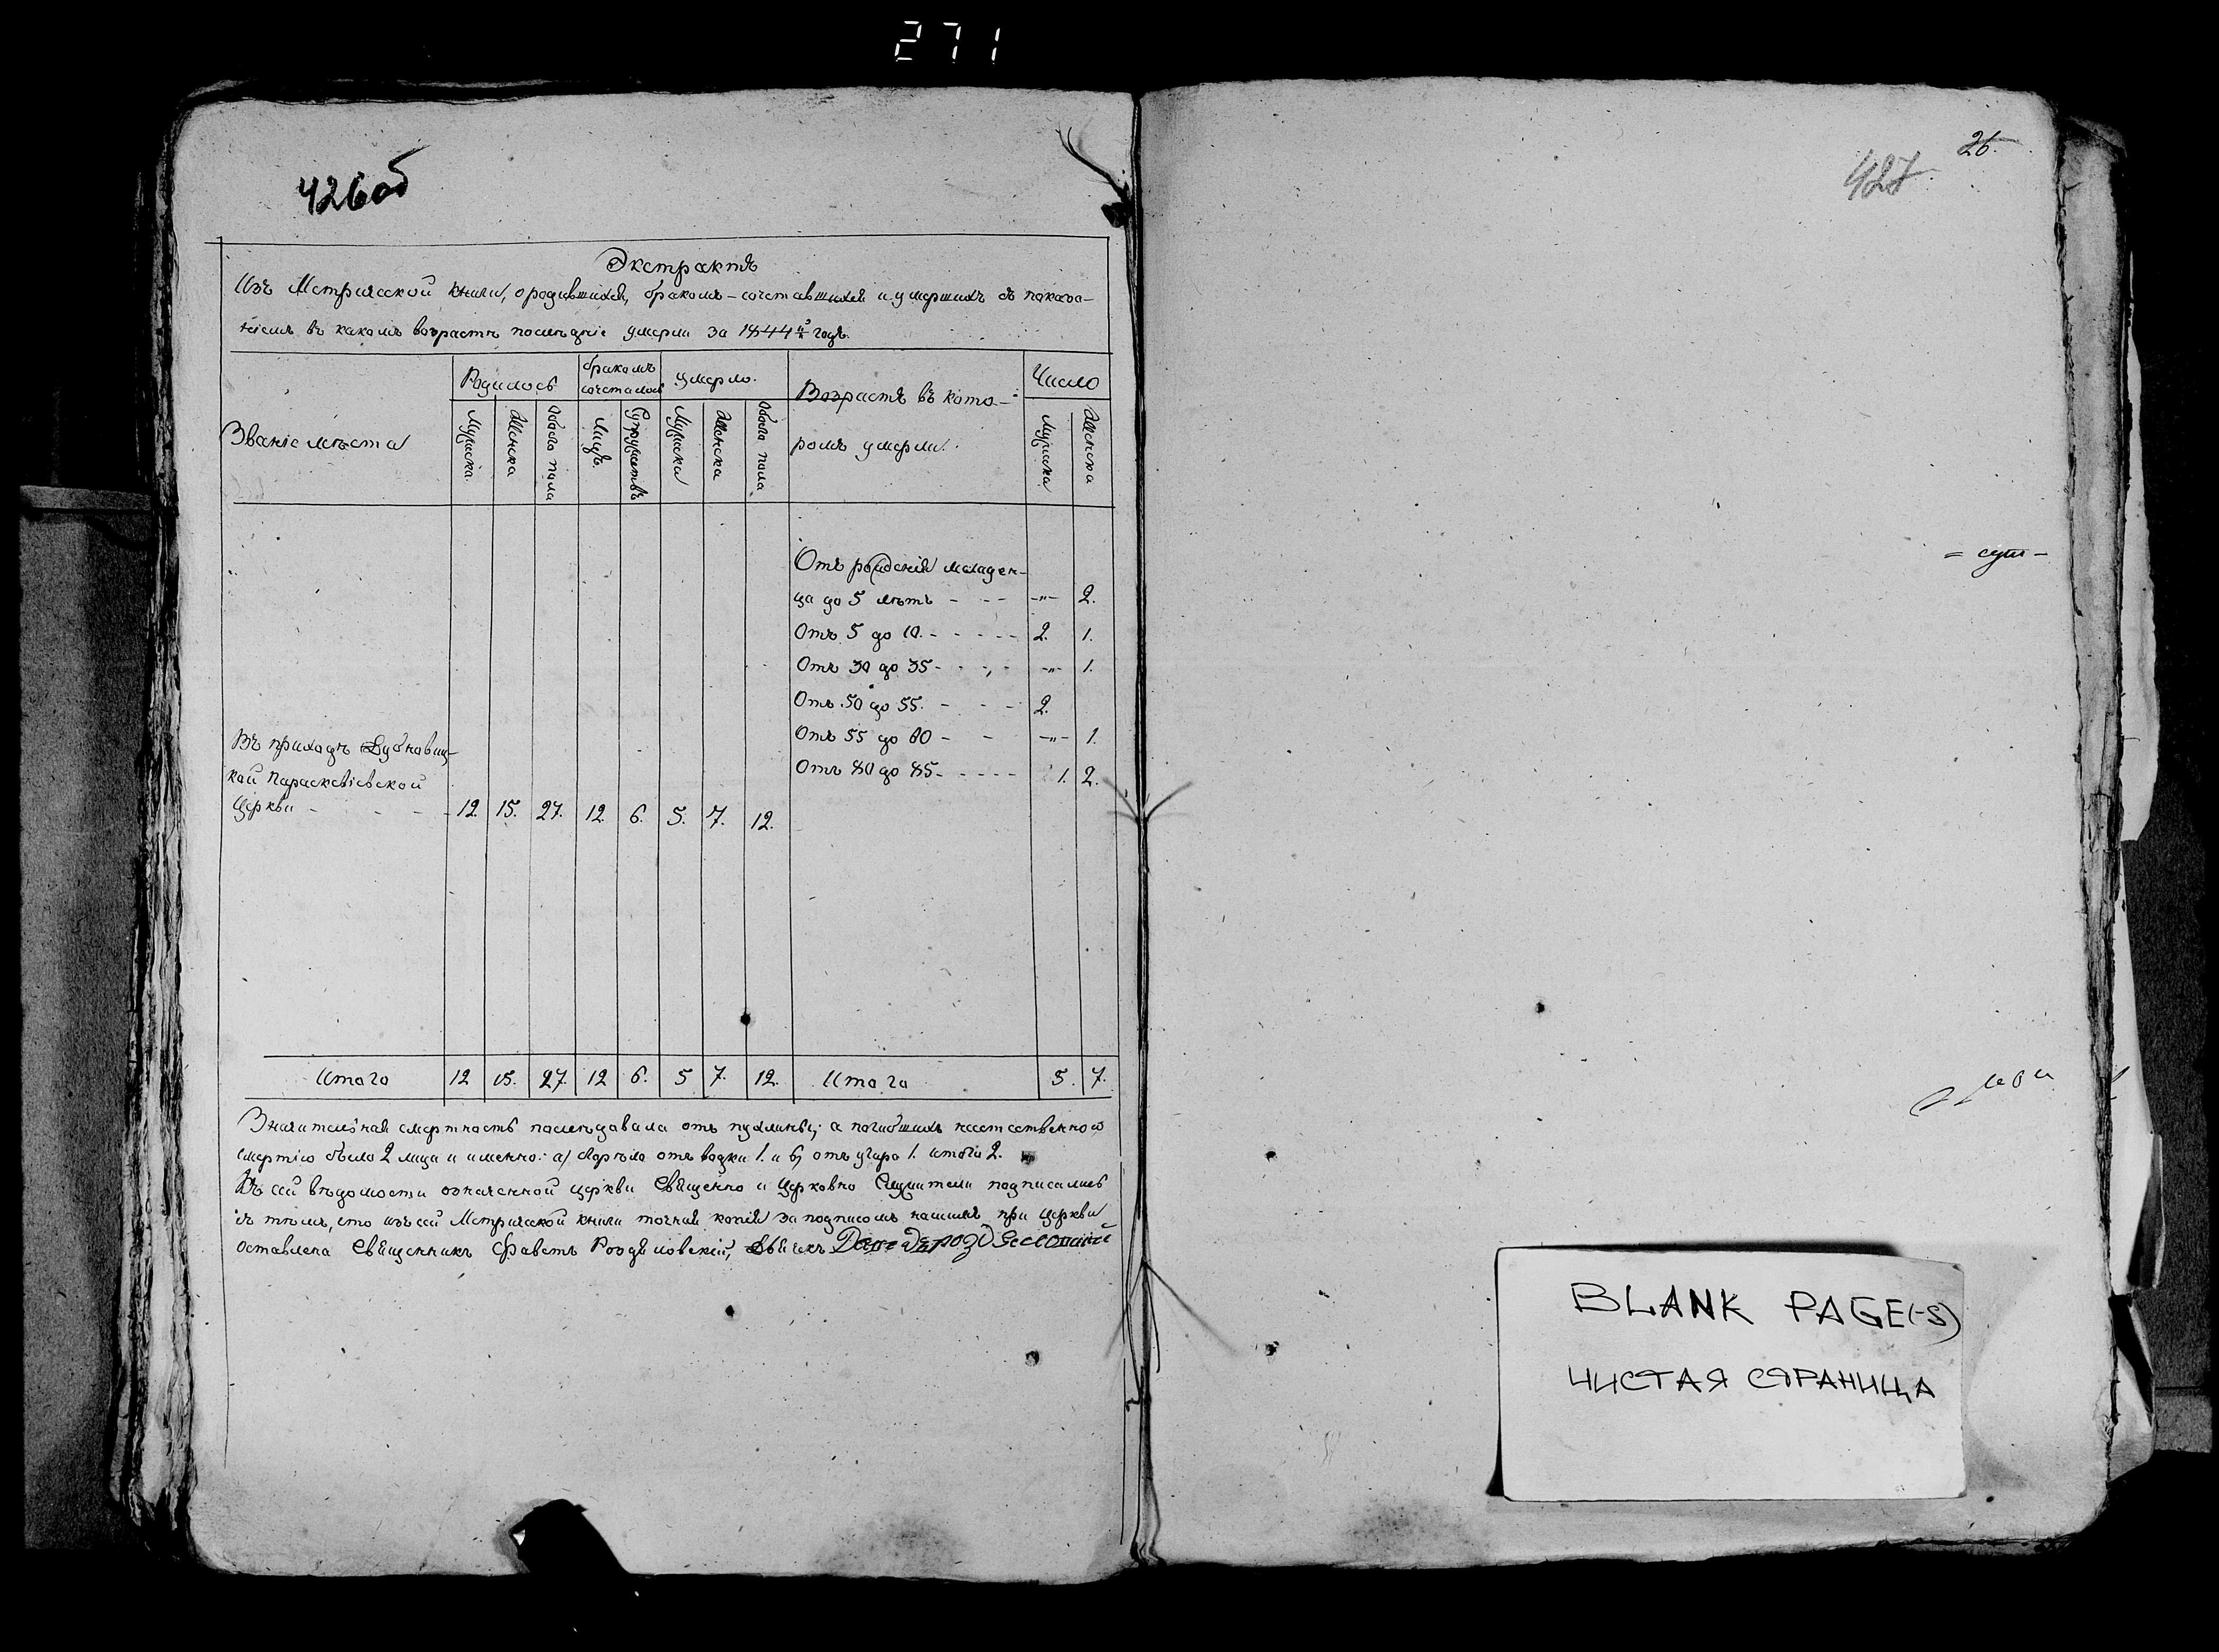 271
426об
Экстрактъ
Изъ Метрической книги, о родившихся, бракомъ-сочетавшихся и умершихъ съ показа-
ніемъ въ какомъ возрастѣ послѣдніе умерли за 1844й годъ.
Званіе мѣста
Родилось
бракомъ сочеталось
умерло.
Возрастъ въ кото-
ромъ умерли.
Число
Мужеска
Женска
Обоего пола
Лицъ
Супружествъ
Мужеска
Женска
Обоего пола
Мужеска
Женска
Отъ рожденія младен-
ца до 5 лѣтъ - - - -"- 2.
Отъ 5 до 10. - - - - - 2. 1.
Отъ 30 до 35 - - - - -"- 1.
Отъ 50 до 55. - - - 2.
Отъ 55 до 60 - - -"- 1.
Отъ 80 до 85. - - - - 1. 2.
Въ приходѣ
кой Параскевіевской
Церкви - - - - 12. 15. 27. 12. 6. 5. 7. 12.
Итого 12 15. 27. 12 6. 5 7. 12. Итого 5. 7.
Значительная смертность послѣдовала отъ пухлины; а погибшихъ неестественною
смертію было 2 лица и именно: а) отъ водки 1. и б) отъ угара 1. итого 2.
Въ сей вѣдомости означенной церкви Священно и Церковно Служители подписались
съ тѣмъ, что изъ сей Метрической книги точная копія за подписомъ нашимъ при Церкви
оставлена Священникъ
26.
427
= сущ -
BLANK PAGE(-S)
ЧИСТАЯ СТРАНИЦА